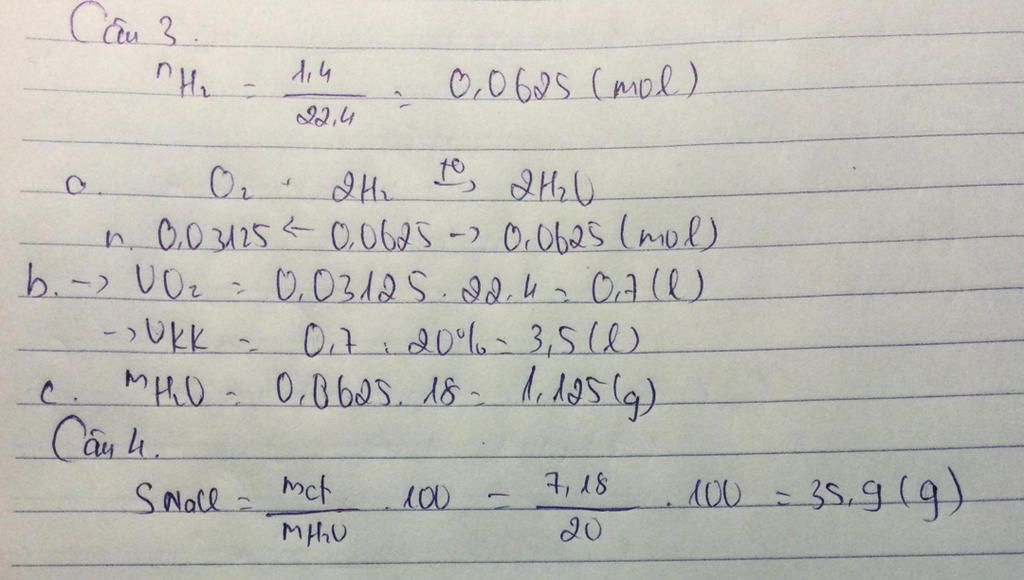 Câu 3.
nH₂ = 1,4 / 22,4 = 0,0625 (mol)
a. O₂ + 2H₂ t° → 2H₂O
n. 0,03125 ← 0,0625 → 0,0625 (mol)
b. → VO₂ = 0,03125 . 22,4 = 0,7 (l)
→ VKK = 0,7 : 20% = 3,5 (l)
c. mH₂O = 0,0625 . 18 = 1,125 (g)
Câu 4.
SNaCl = mct / mH₂O . 100 = 7,18 / 20 . 100 = 35,9 (g)